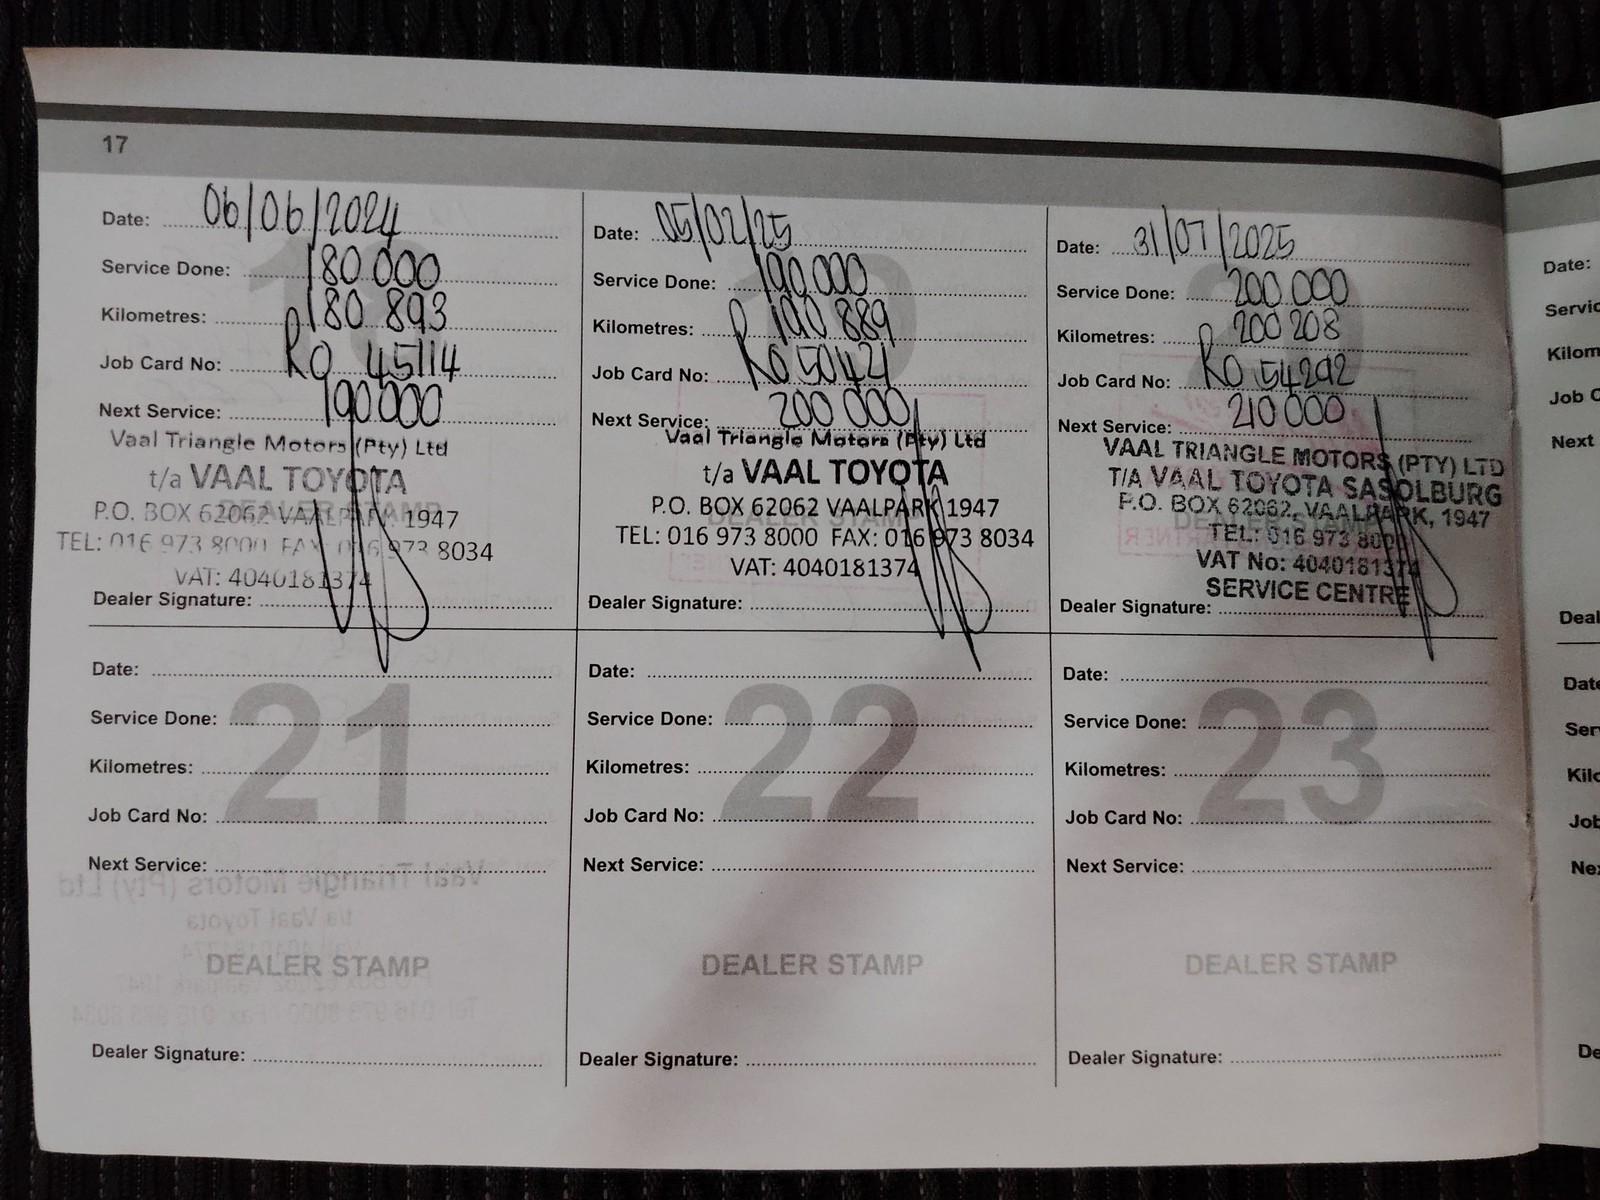 17
Date: 06/06/2024
Service Done: 180 000
Kilometres: 180 893
Job Card No: RO 45114
Next Service: 190 000
Vaal Triangle Motors (Pty) Ltd
t/a VAAL TOYOTA
P.O. BOX 62062 VAALPARK 1947
TEL: 016 973 8000 FAX: 016 973 8034
VAT: 4040181374
DEALER STAMP
Dealer Signature:
Date: 05/02/25
Service Done: 190 000
Kilometres: 190 889
Job Card No: RO 50421
Next Service: 200 000
Vaal Triangle Motors (Pty) Ltd
t/a VAAL TOYOTA
P.O. BOX 62062 VAALPARK 1947
TEL: 016 973 8000 FAX: 016 973 8034
VAT: 4040181374
DEALER STAMP
Dealer Signature:
20
Date: 31/07/2025
Service Done: 200 000
Kilometres: 200 208
Job Card No: RO 54292
Next Service: 210 000
VAAL TRIANGLE MOTORS (PTY) LTD
T/A VAAL TOYOTA SASOLBURG
P.O. BOX 62062, VAALPARK, 1947
DEALER STAMP
TEL: 016 973 8000
VAT No: 4040181374
SERVICE CENTRE
Dealer Signature:
21
Date:
Service Done:
Kilometres:
Job Card No:
Next Service:
DEALER STAMP
Dealer Signature:
22
Date:
Service Done:
Kilometres:
Job Card No:
Next Service:
DEALER STAMP
Dealer Signature:
23
Date:
Service Done:
Kilometres:
Job Card No:
Next Service:
DEALER STAMP
Dealer Signature:
Date:
Job